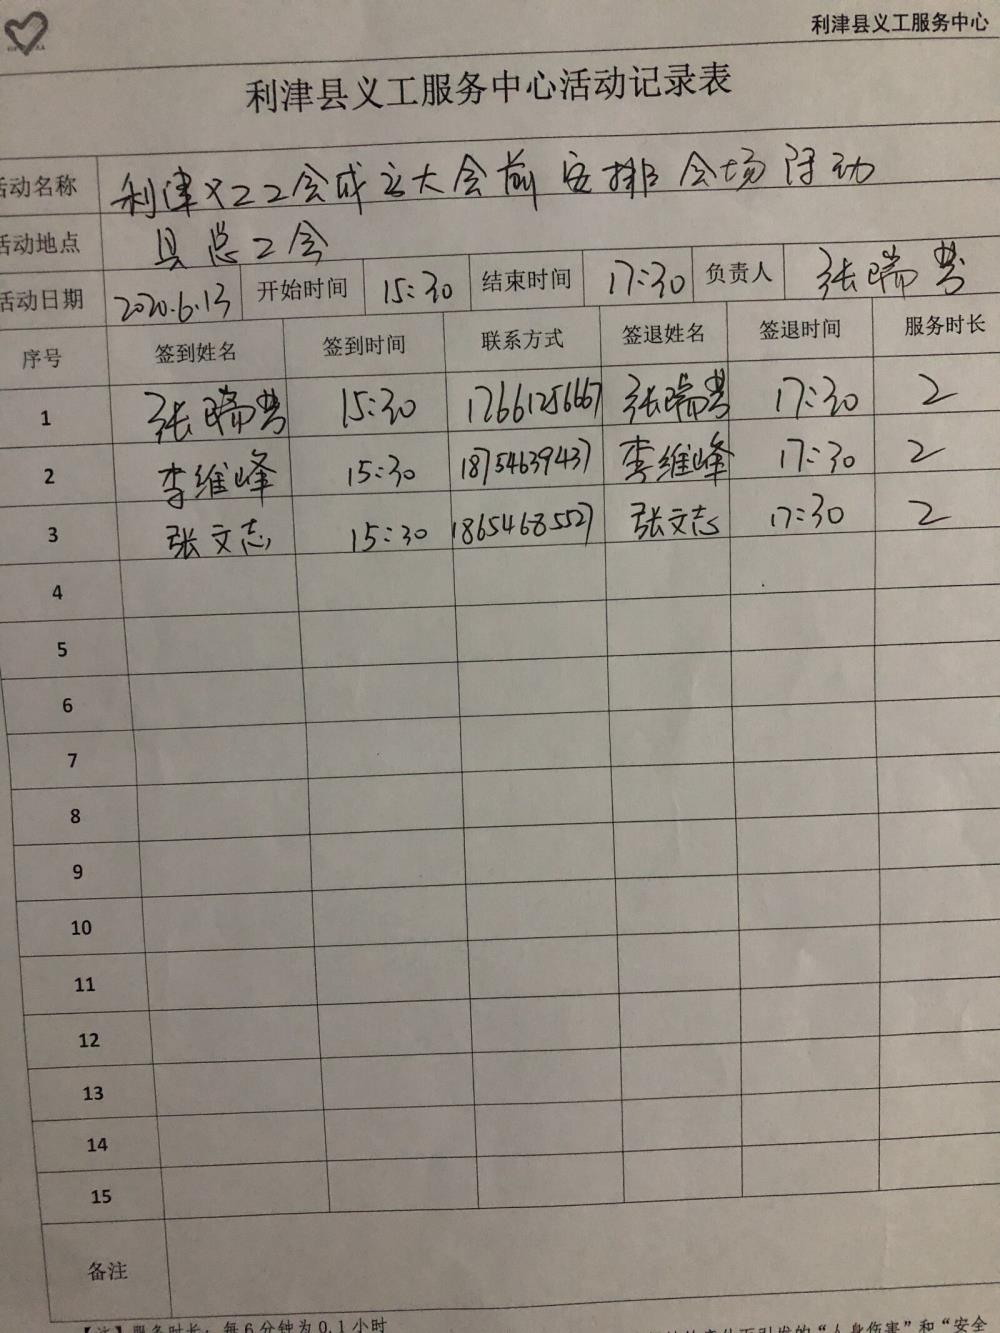 利津县义工服务中心
利津县义工服务中心活动记录表
活动名称 利津义工工会成立大会前安排会场活动
活动地点 县总工会
活动日期 2020.6.13 开始时间 15:30 结束时间 17:30 负责人 张瑞芸
序号 签到姓名 签到时间 联系方式 签退姓名 签退时间 服务时长
1 张瑞芸 15:30 17661256667 张瑞芸 17:30 2
2 李维峰 15:30 18754639437 李维峰 17:30 2
3 张文志 15:30 18654685527 张文志 17:30 2
4
5
6
7
8
9
10
11
12
13
14
15
备注
【注】服务时长：每6分钟为0.1小时
引发的“人身伤害”和“安全